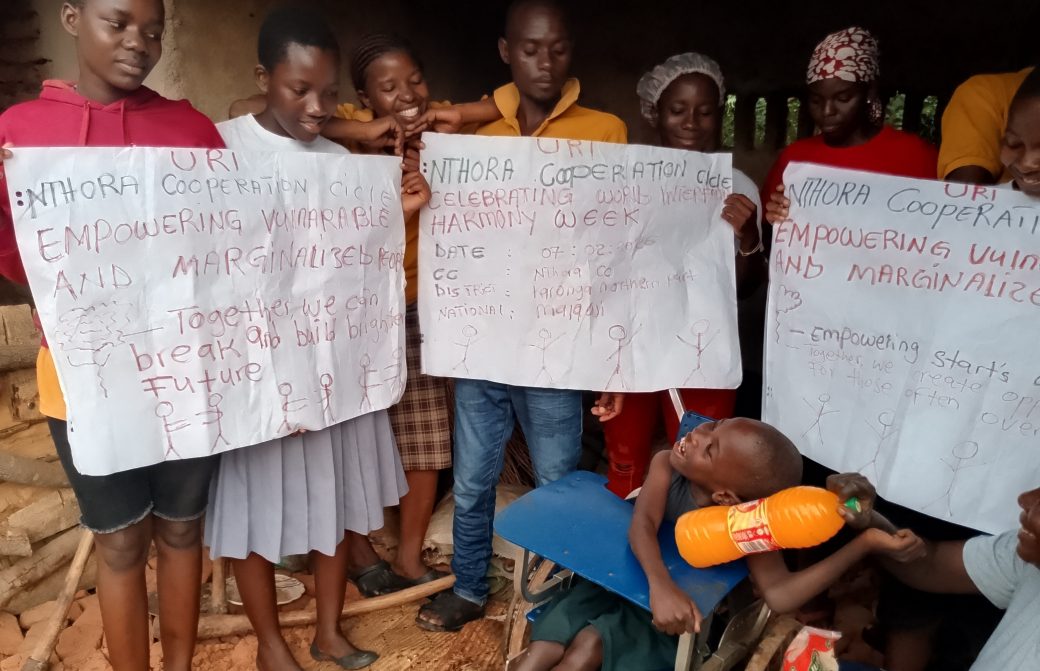 URI
:NTHORA COOPERATION CICLE
EMPOWERING VULNARABLE
AND MARGINALISED
— Together we can
break and build brighter
Future
URI
:NTHORA COOPERATION CICLE
CELEBRATING WORLD
HARMONY WEEK
DATE : 07:02:
CC : Nthora CC
DISTRICT : karonga northern part
NATIONAL : malawi
URI
NTHORA COOPERATI
EMPOWERING VULN
AND MARGINALIZE
— Empowering start's
Together we create opp
For those often over